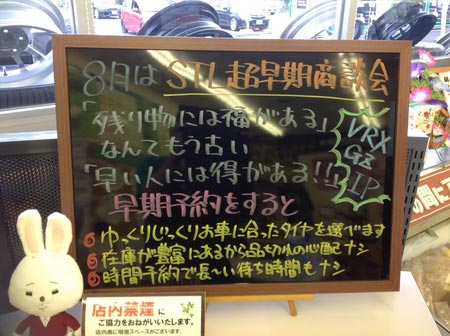 8月は STL超早期商談会
「残り物には福がある」
なんてもう古い
「早い人には得がある!!」
VRX
GZ
IP
早期予約をすると
ゆっくりじっくりお車に合ったタイヤを選べます
在庫が豊富にあるから品切れの心配ナシ
時間予約で長〜い待ち時間もナシ
店内禁煙に
ご協力をおねがいいたします。
店内奥に喫煙スペースがございます。